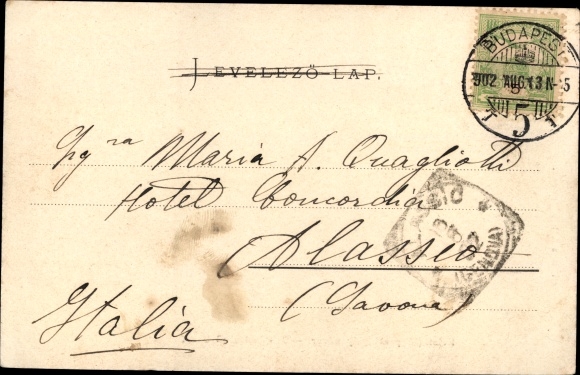 BUDAPEST
902 AUG. 13 N-5
5
LEVELEZŐ-LAP.
Pg ra Maria A. Quagliotti
Hotel Concordia
Alassio
(Savona)
Italia